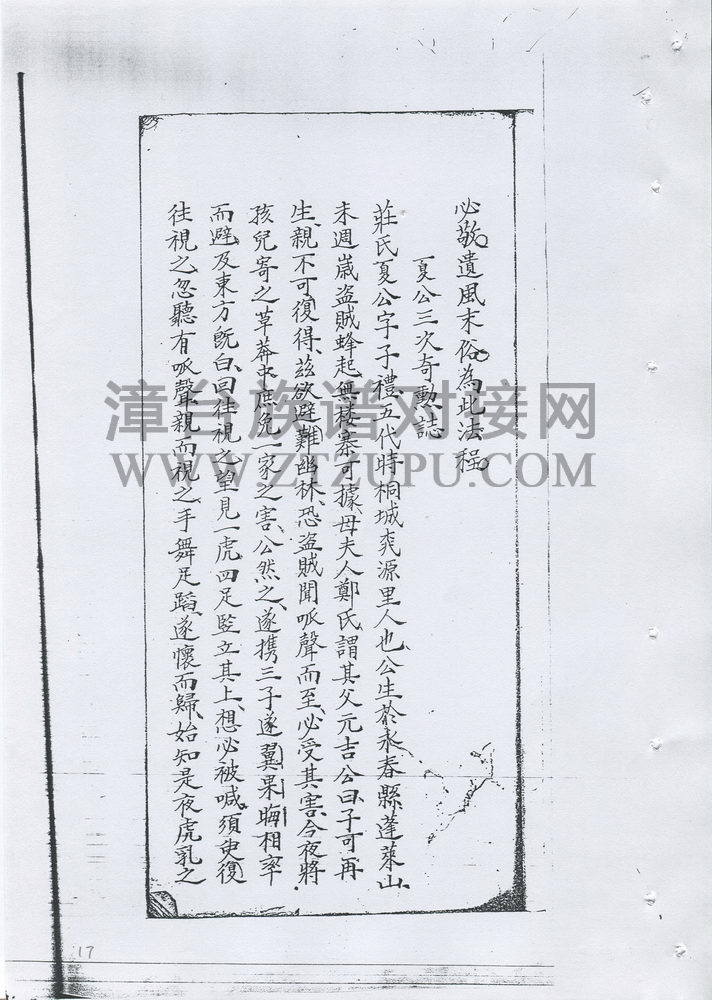 必敬遺風末俗為此法程
夏公三次奇勳誌
莊氏夏公字子禮五代時桐城桃源里人也公生於永春縣蓬萊山
未週歲盜賊蜂起無楼寨可據母夫人鄭氏謂其父元吉公曰子可再
生親不可復得茲欲避難幽林恐盜賊聞呱聲而至必受其害今夜將
孩兒寄之草莽中庶免一家之害公然之遂携三子遂翼果晦相率
而避及東方既白回往視之望見一虎四足監立其上想必被喊須臾復
往視之忽聽有呱聲親而視之手舞足蹈遂懷而歸始知是夜虎乳之
漳台族谱对接网
WWW.ZTZUPU.COM
17